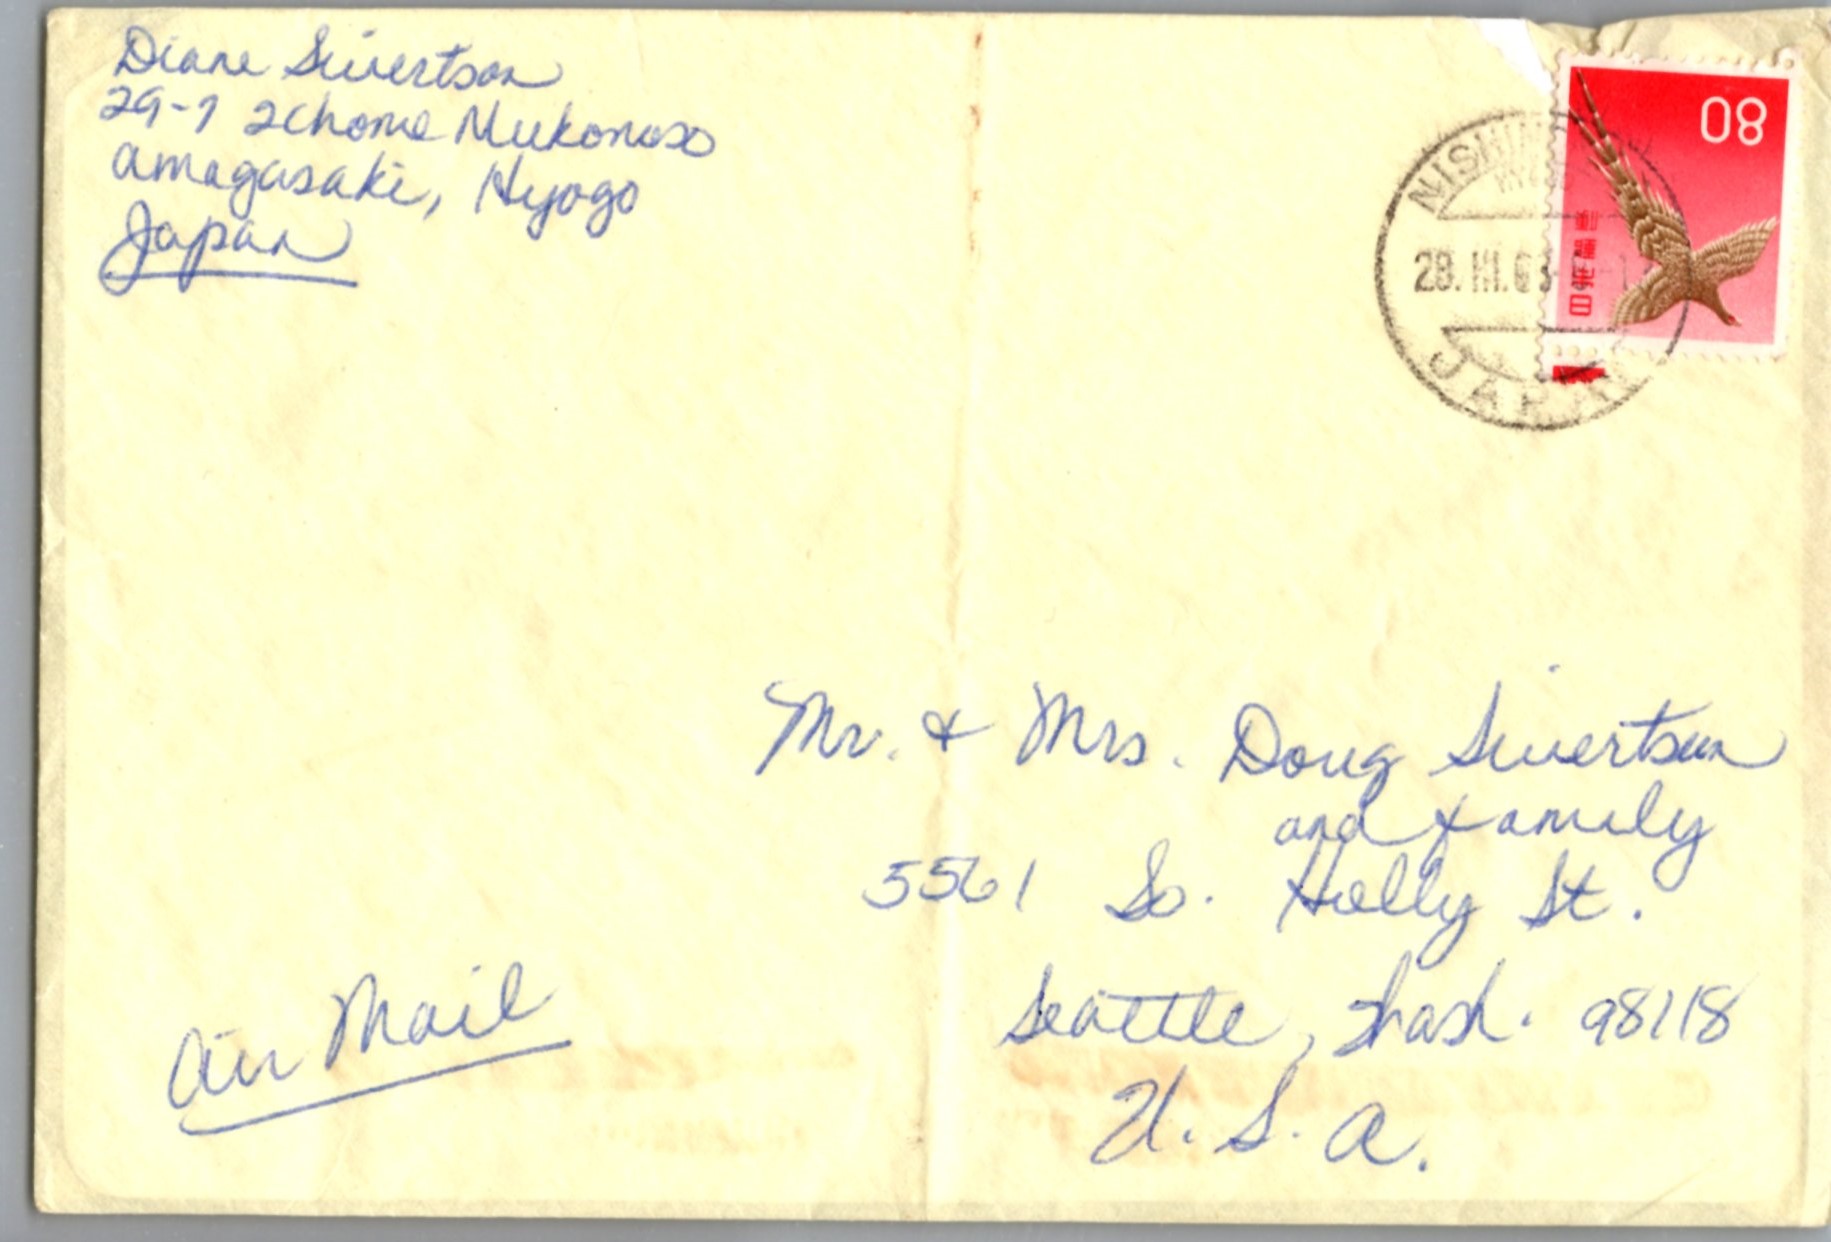 Diane Sivertson
29-7 2chome Mukonoso
Amagasaki, Hyogo
Japan
80
日本郵便
28. III.
JAPAN
Mr. & Mrs. Doug Sivertson
and family
5561 So. Holly St.
Seattle, Wash. 98118
U. S. A.
Air Mail